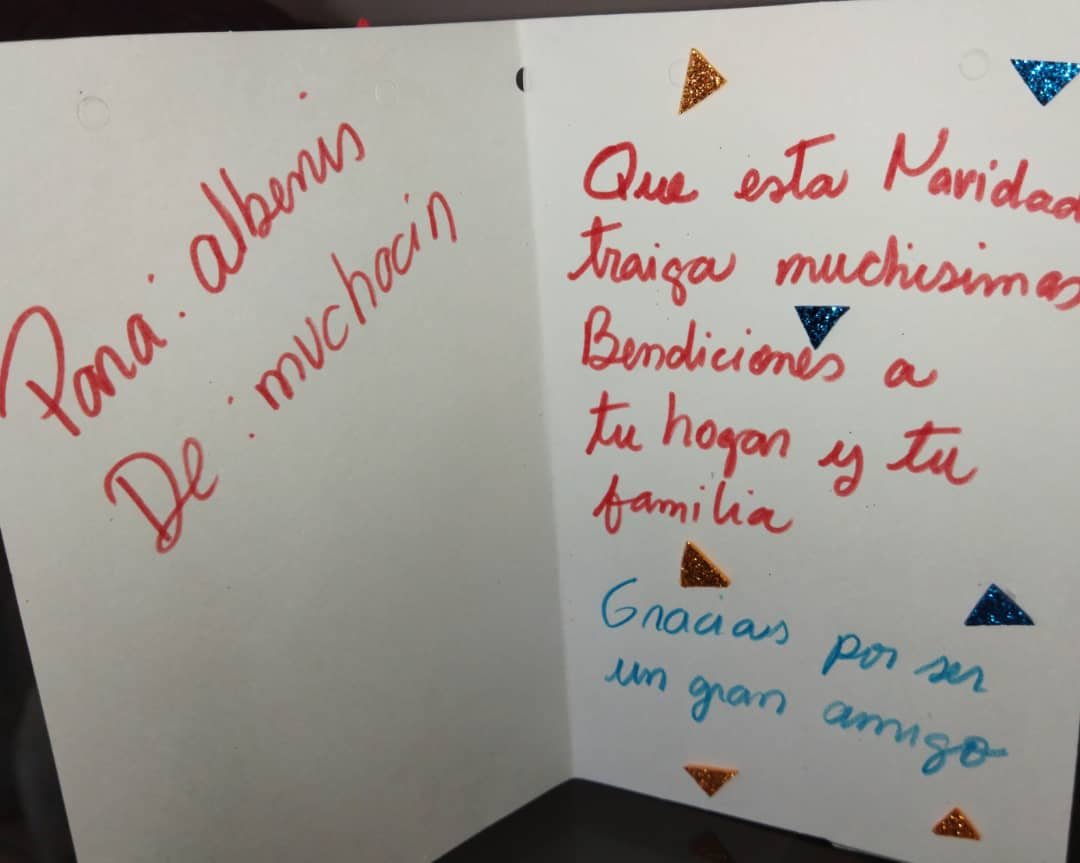 Para: albenis
De: muchocin
Que esta Navidad
traiga muchisimas
Bendiciones a
tu hogar y tu
familia
Gracias por ser
un gran amigo